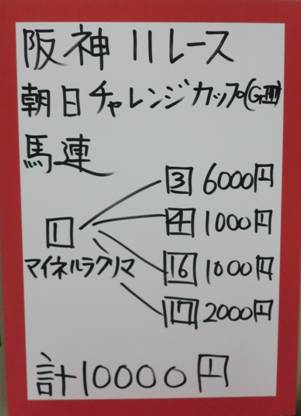 阪神11レース
朝日チャレンジカップ(GⅢ)
馬連
3 6000円
4 1000円
1
マイネルラクリマ
16 1000円
17 2000円
計10000円